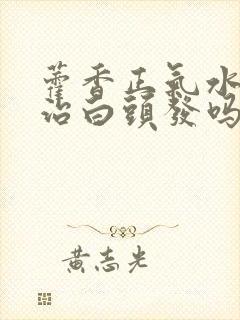 藿香正氣水
治白頭發吗
黄志光